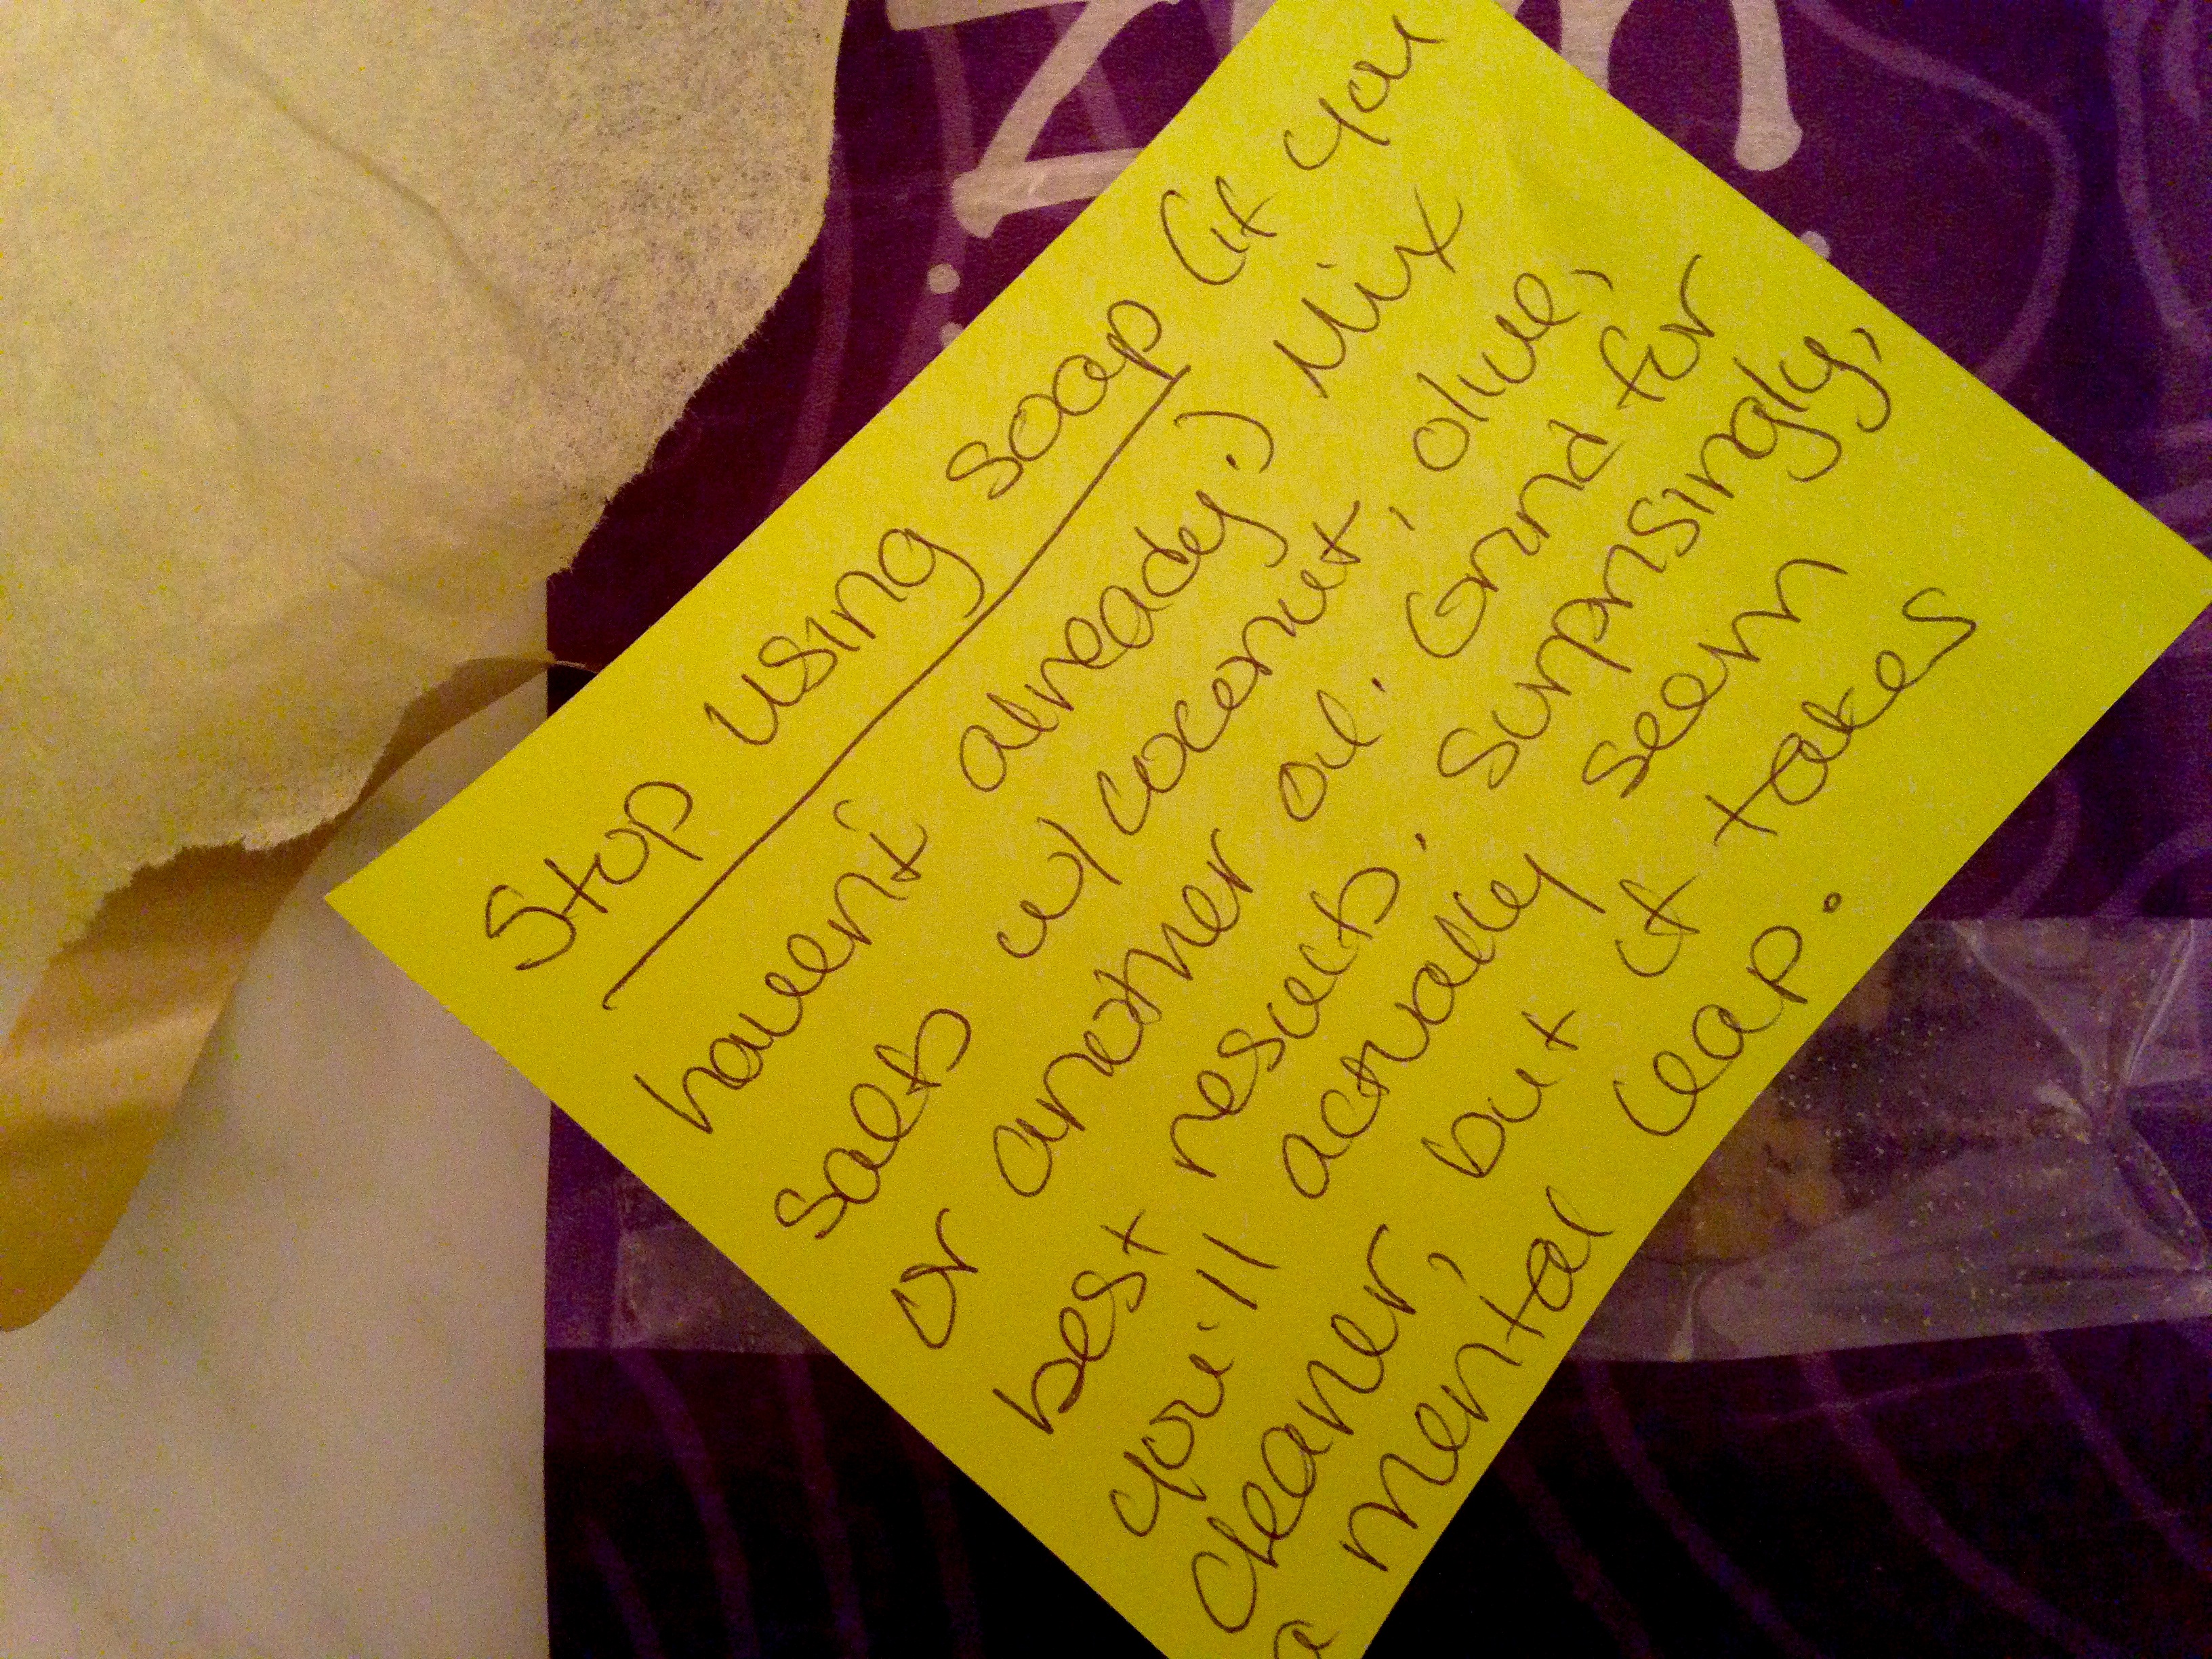 Stop using soap (if you
haven't already.) Mix
salts w/ coconut, olive,
or another oil. Grind for
best results. Surprisingly,
you'll actually seem
cleaner, but it takes
a mental leap.